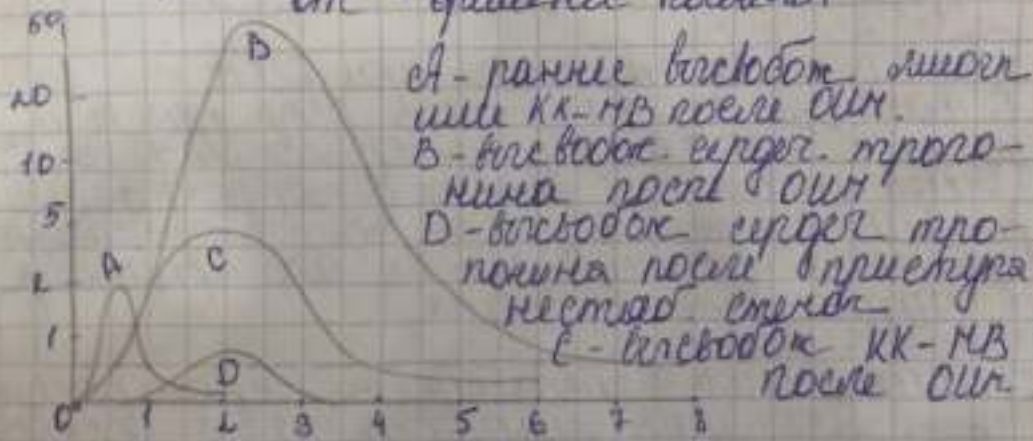 от
60
20
10
5
2
1
0 1 2 3 4 5 6 7 8
A
B
C
D
А - раннее высвобож миогл
или КК-МВ после ОИМ.
В - высвобож. сердеч. тропо-
нина после ОИМ
D - высвобож сердеч тро-
понина после приступа
нестаб стенок
С - высвобож КК-МВ
после ОИМ